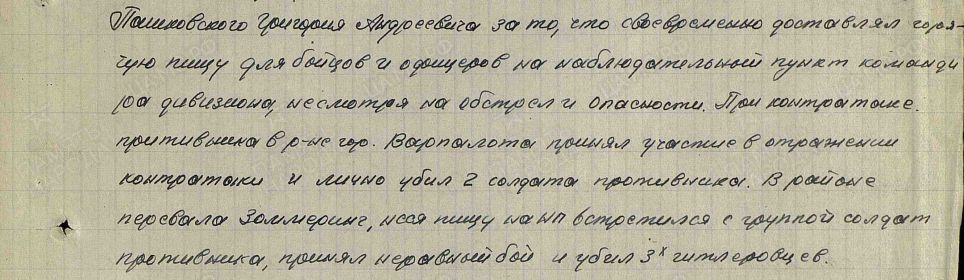 Пашковского Григория Андреевича за то, что своевременно доставлял горя-
чую пищу для бойцов и офицеров на наблюдательный пункт команди
ра дивизиона, несмотря на обстрел и опасности. При контратаке
притивника в р-не гор. Варпалота принял участие в отражении
контратаки и лично убил 2 солдата противника. В районе
перевала Земмеринг, неся пищу на НП встретился с группой солдат
противника, принял неравный бой и убил 3х гитлеровцев.